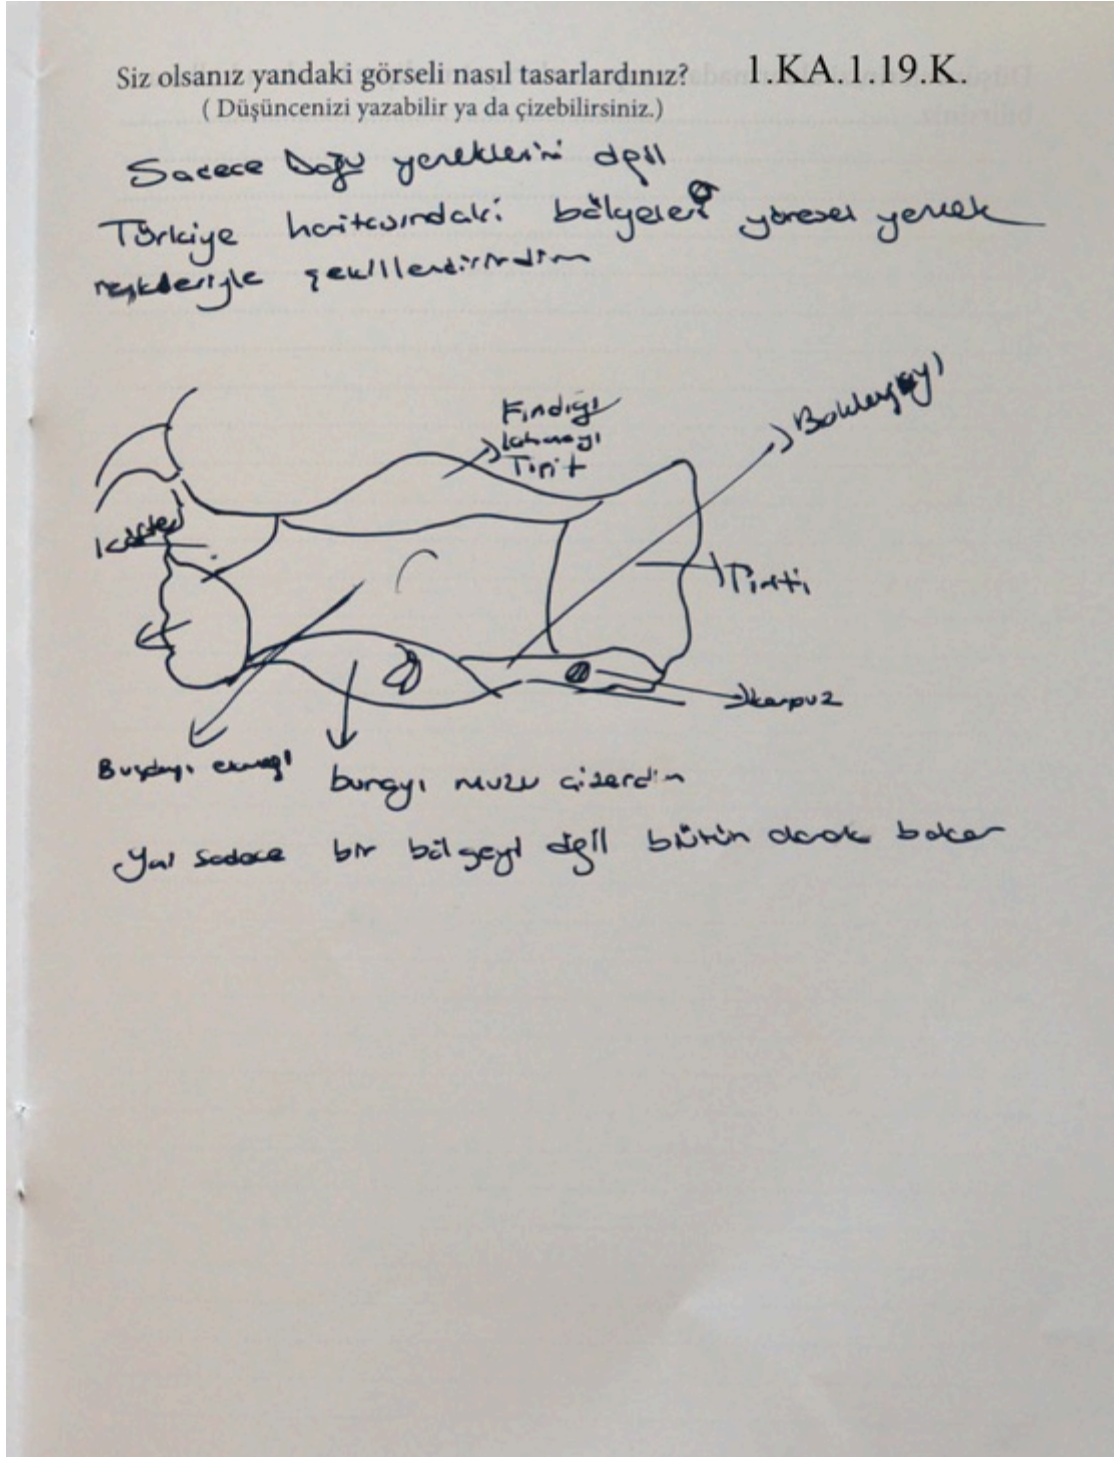 Siz olsanız yandaki görseli nasıl tasarlardınız? 1.KA.1.19.K.
( Düşüncenizi yazabilir ya da çizebilirsiniz.)
Sadece Doğu yemeklerini değil
Türkiye haritasındaki bölgeleri yöresel yemek
şekillendirirdim
Fındığı
Tirit
Tiriti
karpuz
Buğdayı ekmeği
burayı muzu çizerdim
Yai sadece bir bölgeyi değil bütün olarak